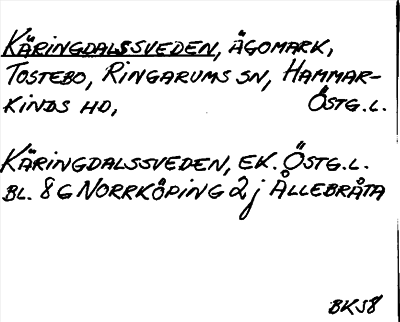 KÄRINGDALSSVEDEN, ÄGOMARK,
TOSTEBO, RINGARUMS SN, HAMMAR-
KINDS HD, ÖSTG.L.
KÄRINGDALSSVEDEN, EK. ÖSTG.L.
BL. 8 G NORRKÖPING 2 j ÅLLEBRÅTA
BKS8